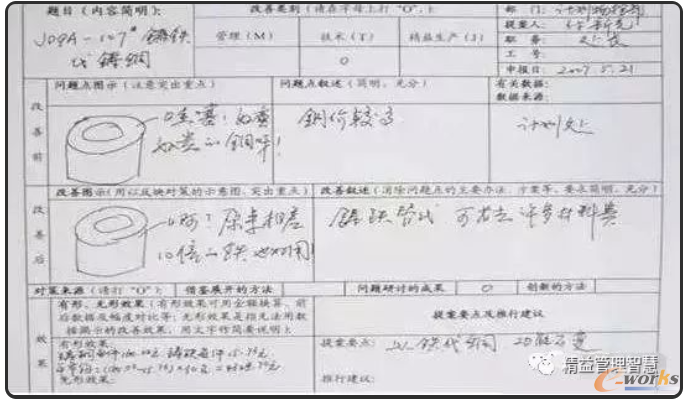 题目（内容简明）：
J09A-107# 铸铁
代铸铜
改善类别（请在字母上打“O”）：
管理（M） 技术（T） 精益生产（J）
O
部 门：
提案人：
职 务： 处长
工 号：
申报日：2007.5.21
问题点图示（注意突出重点）
问题点叙述（简明、充分）
有关数据：
数据来源：
改善前
哇塞！好贵
好贵的铜呀！
铜价较高
计划处
改善图示（用以反映对策的示意图，突出重点）
改善叙述（消除问题点的主要办法、方案等，要求简明、充分）
改善后
啊？原来相差
10倍的铁也好用！
铸铁替代 可省去许多材料费
对策来源（请打“O”）： 借鉴展开的方法 问题研讨的成果 O 创新的方法
效果
有形、无形效果（有形效果可用金额换算、前
后数据及幅度对比等；无形效果是指无法用数
据揭示的改善效果，用文字作简要说明）：
有形效果：
无形效果：
提案要点及推行建议
提案要点： 以铁代铜 功能不变
推行建议：
精益管理智慧
e-works